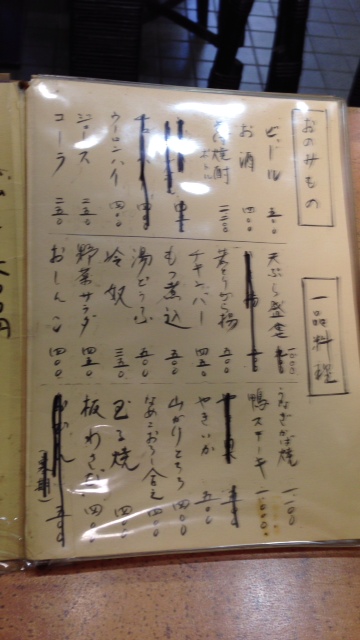 おのみもの
ビール 五〇〇
お酒 四〇〇
焼酎 ボトル
ウーロンハイ 四〇〇
ジュース 二五〇
コーラ 二五〇
一品料理
天ぷら盛合 一、〇〇〇
若とり唐揚 五〇〇
チキンバー 四五〇
もつ煮込 五〇〇
湯どうふ 五〇〇
冷奴 三五〇
野菜サラダ 四五〇
おしんこ 四〇〇
うなぎかば焼 一、一〇〇
鴨ステーキ 一、〇〇〇
やきいか 五〇〇
山かけとろろ 四〇〇
なめこおろし合え 四〇〇
玉子焼 四〇〇
板わさ 四〇〇
五〇〇